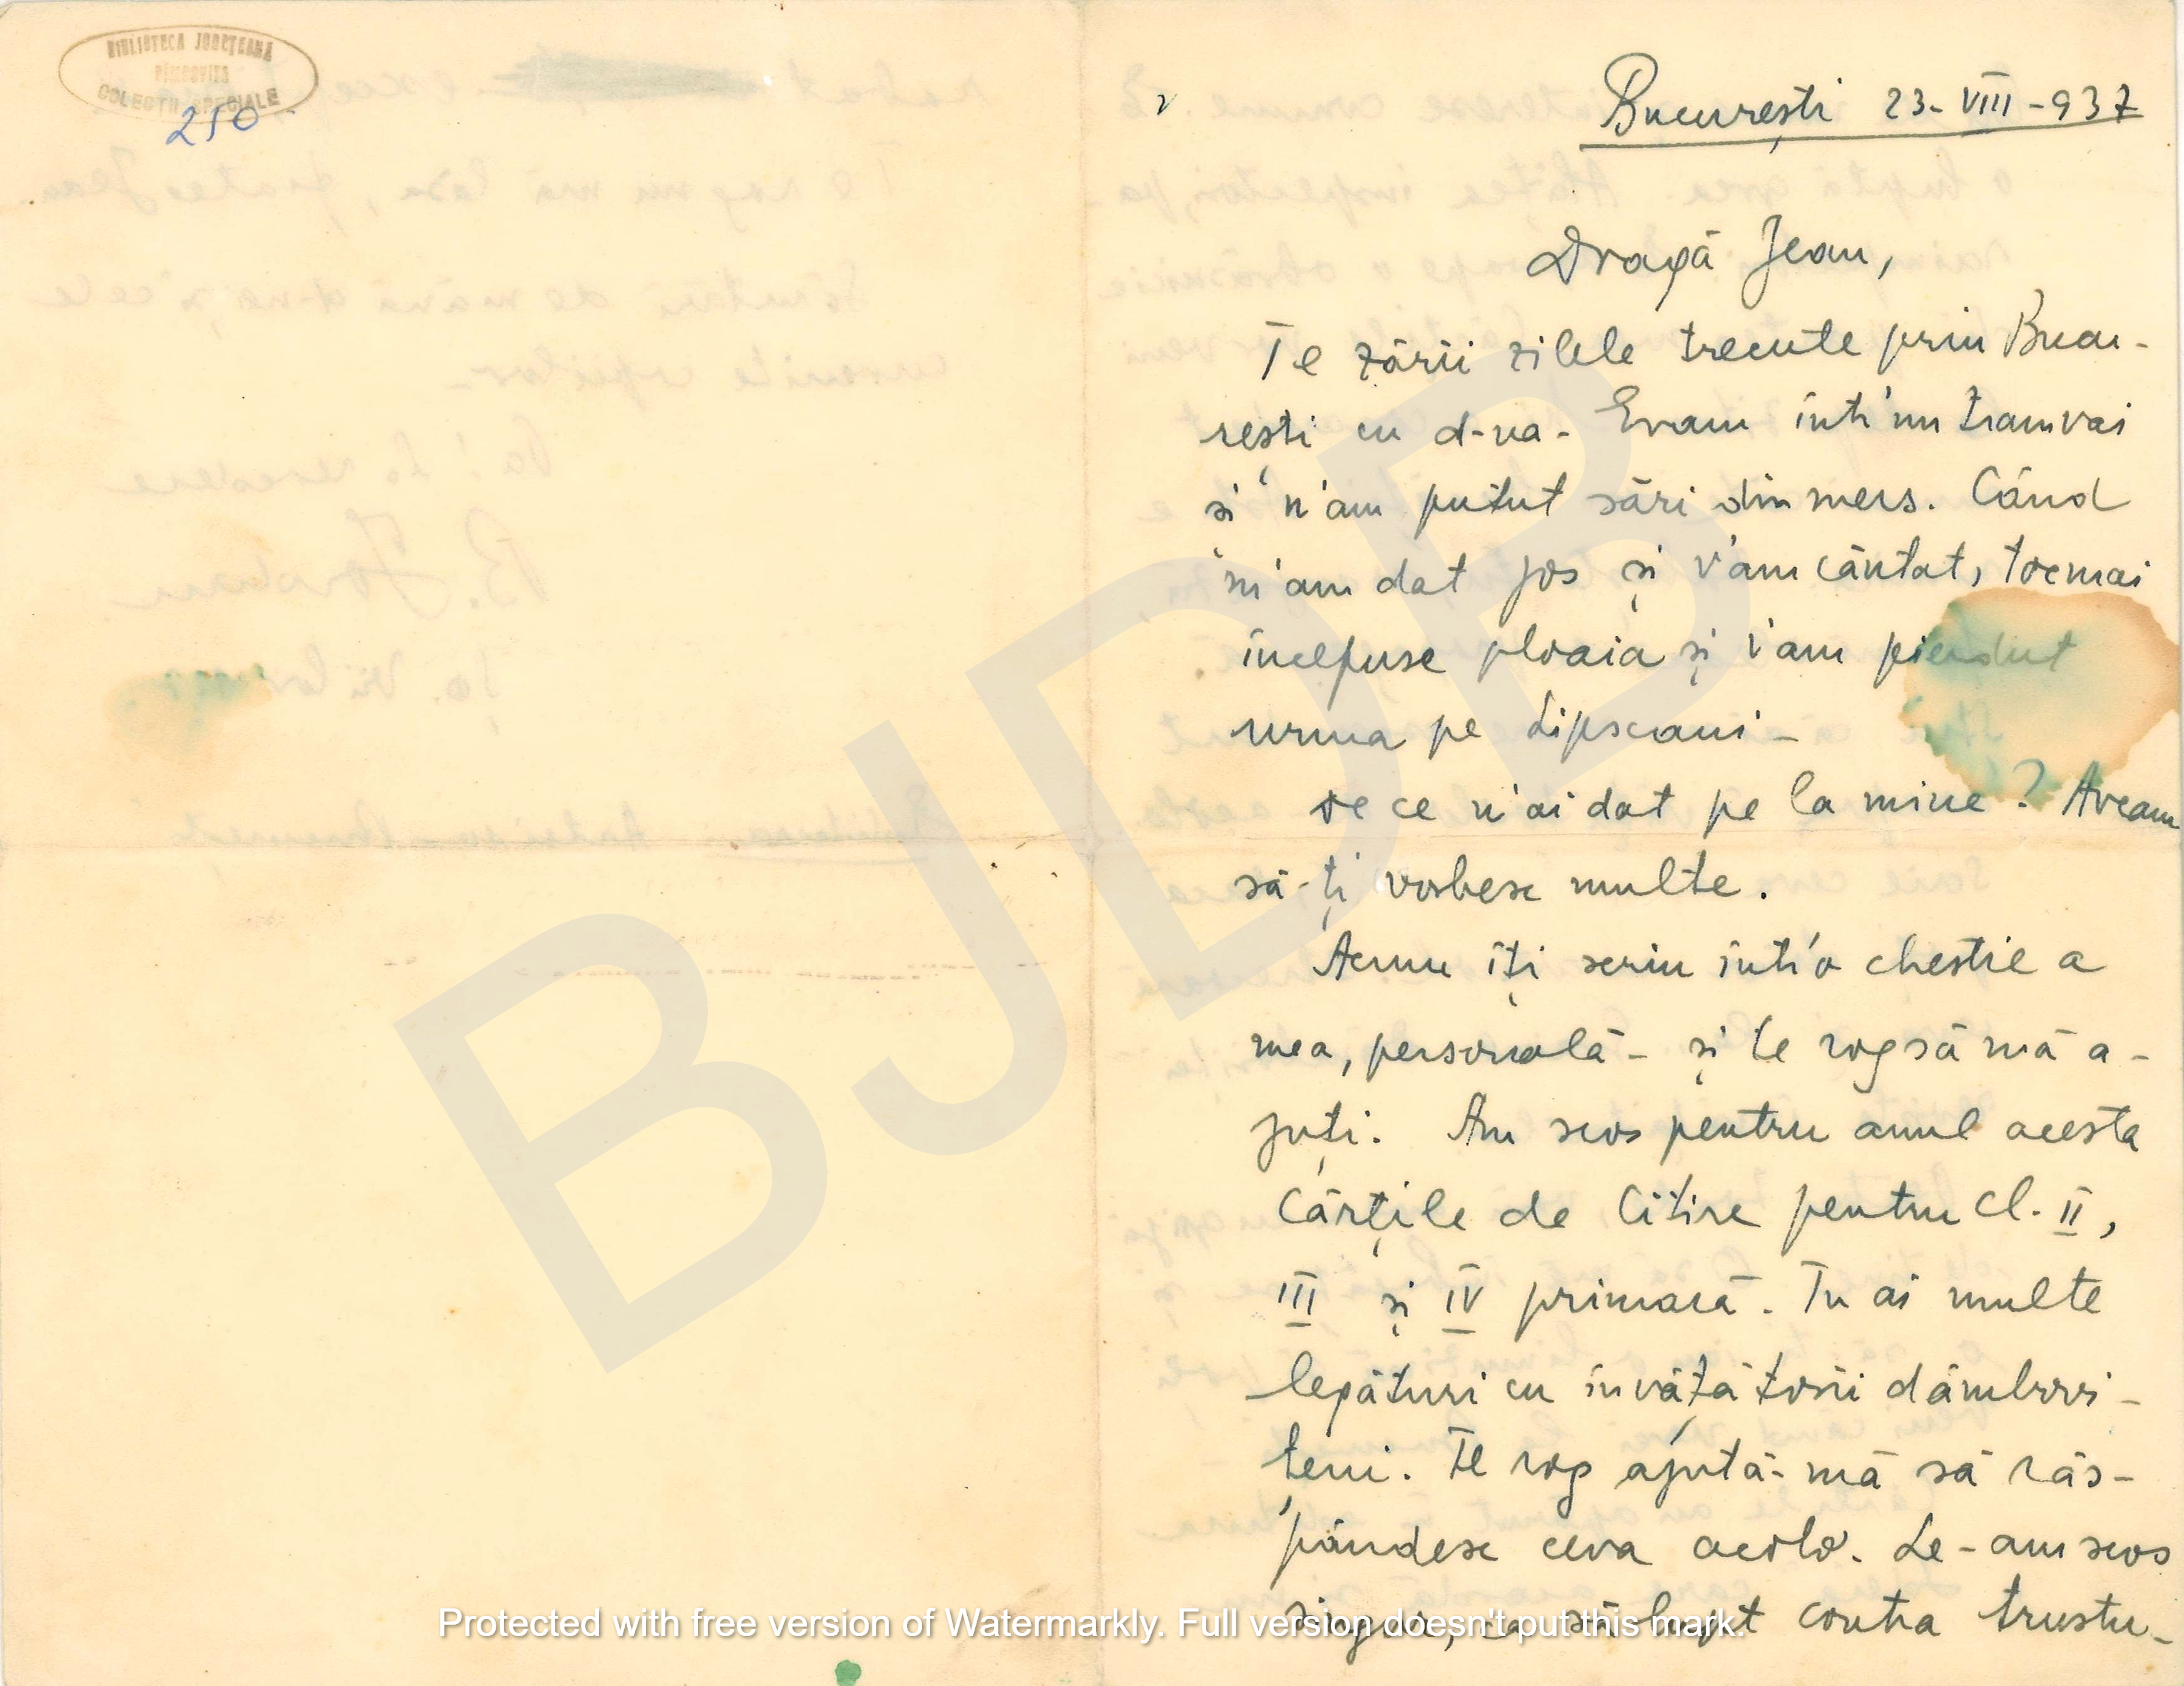 BIBLIOTECA JUDEȚEANĂ
DÎMBOVIȚA
COLECȚII SPECIALE
210
București 23-VIII-937
Dragă Jean,
Te zării zilele trecute prin Bucu-
rești cu d-na. Eram într'un tramvai
și n'am putut sări din mers. Când
m'am dat jos și v'am căutat, tocmai
începuse ploaia și v'am pierdut
urma pe Lipscani-
De ce n'ai dat pe la mine? Aveam
să-ți vorbesc multe.
Acum îți scriu într'o chestie a
mea, personală - și te rog să mă a-
juți. Am scos pentru anul acesta
Cărțile de Citire pentru cl. II,
III și IV primară. Tu ai multe
legături cu învățătorii dâmbovi-
țeni. Te rog ajută-mă să răs-
pândesc ceva acolo. Le-am scos
singur, ca să lupt contra trustu-
B J D B
Protected with free version of Watermarkly. Full version doesn't put this mark.